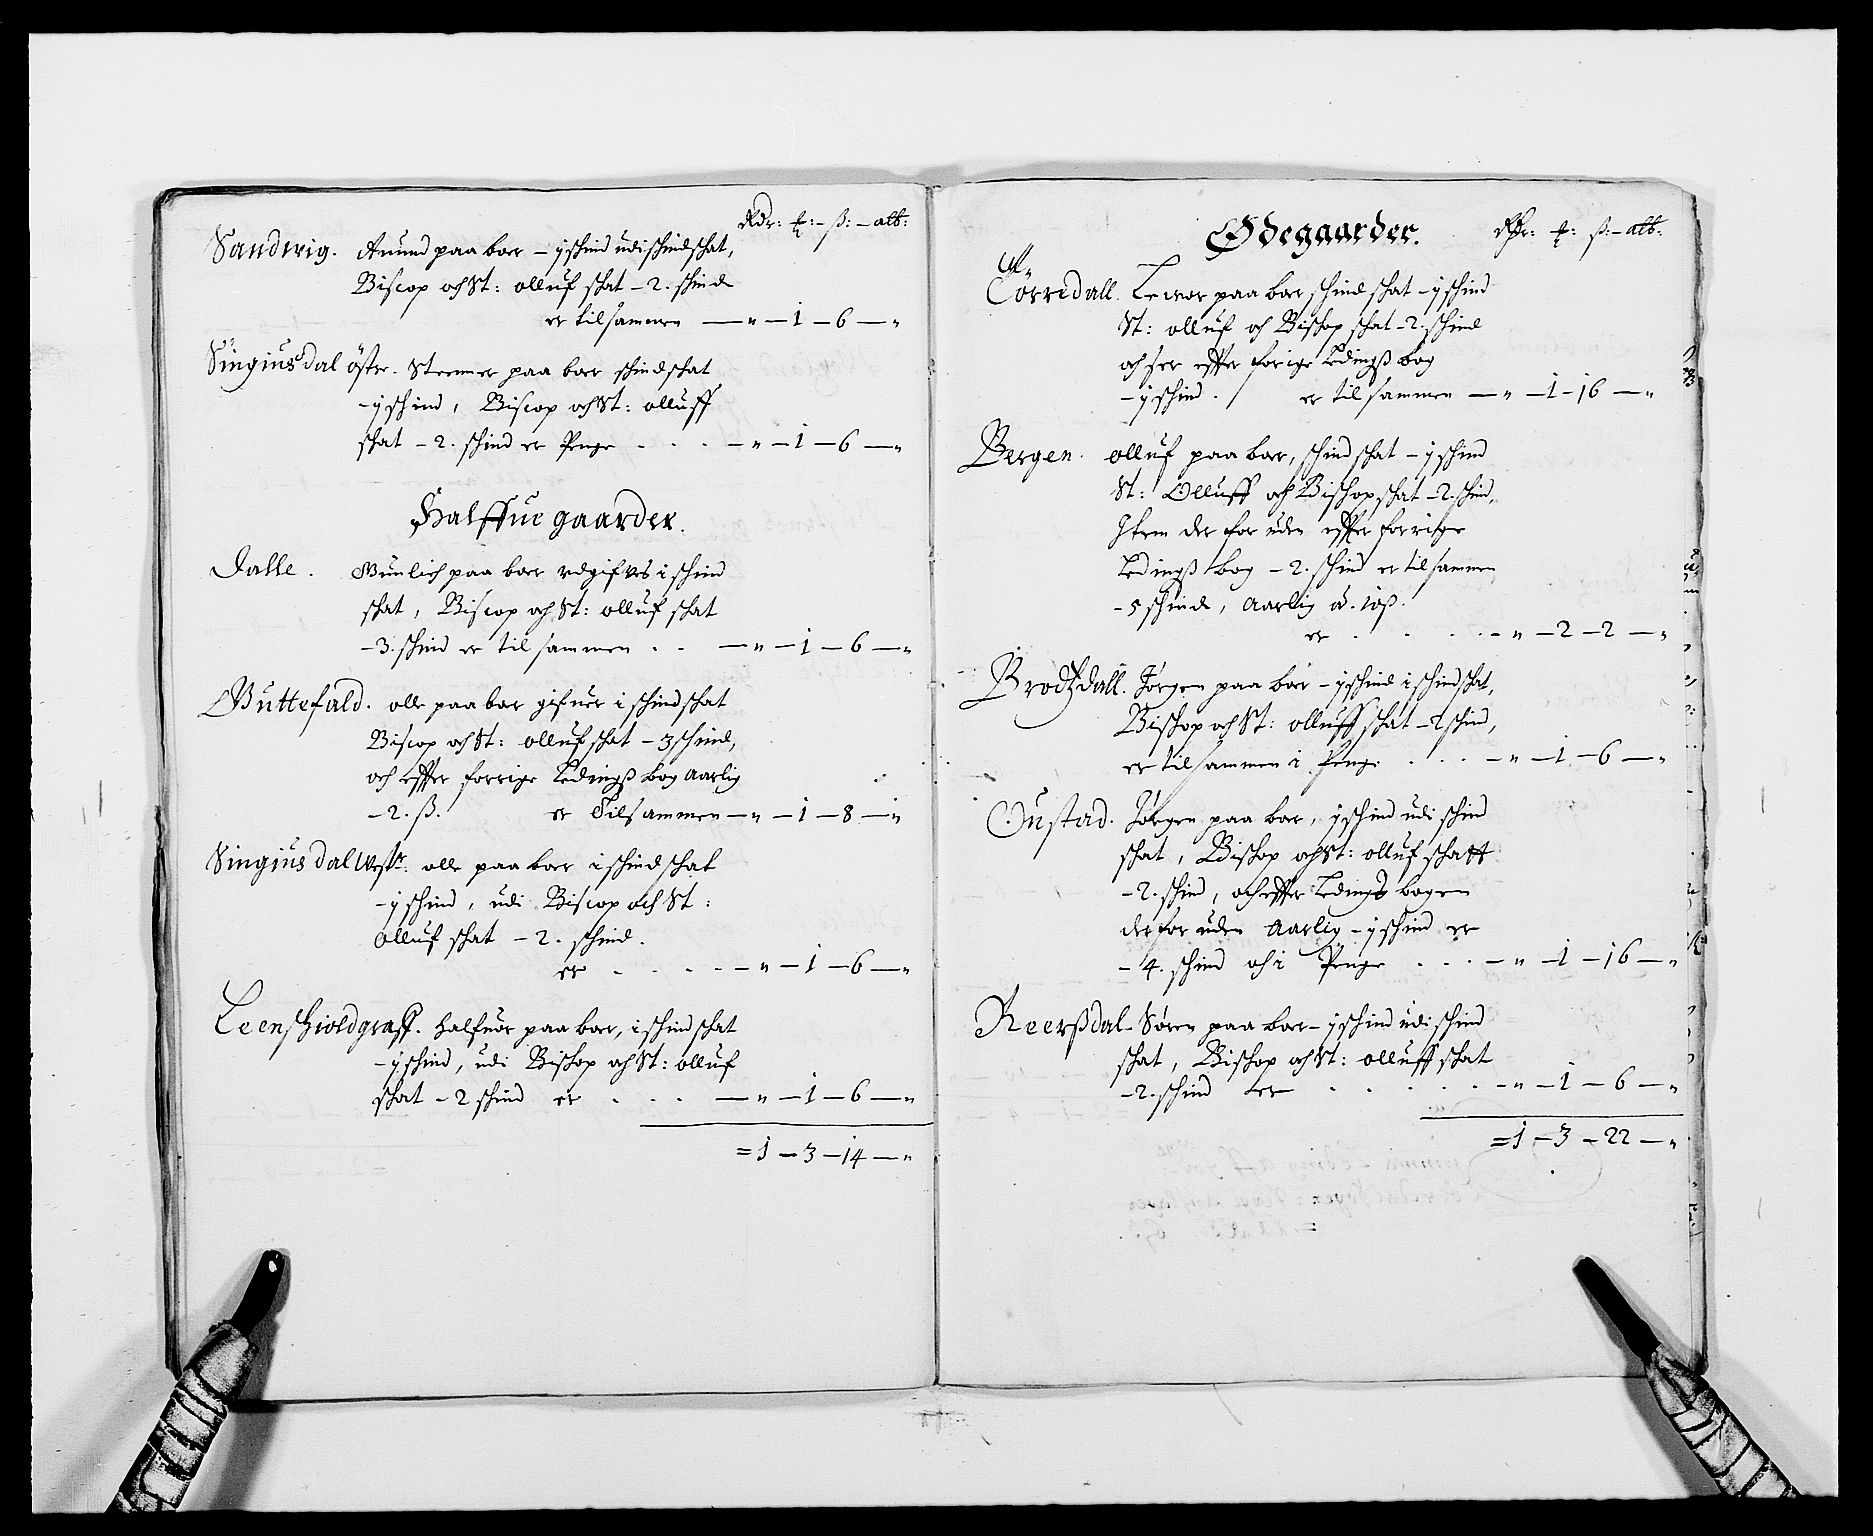 Rdr: ₤: – ß: – alb:
Sandwig. Anund paa boer – 1 schind udi schindschat,
Biscop och St: olluf schat – 2. schind
er tilsammen — „ – 1 – 6 – „
Singiusdal öster. Steener paa boer schindschat
– 1 schind, Biscop och St: olluff
schat – 2. schind er Penge . . . – „ – 1 – 6 – „
Halffue gaarder.
Dalle. Gunlich paa boer udgifves i schind
schat, Biscop och St: olluf schat
– 3. schind er til sammen . . – „ – 1 – 6 – „
Guttefald. olle paa boer gifuer i schindschat
Biscop och St: olluf schat – 3 schind,
och effter forrige Ledingß bog aarlig
– 2. ß. er Tilsammen – „ – 1 – 8 – „
Singiusdal Westr. olle paa boer i schindschat
– 1 schind, udi Biscop och St:
olluf schat – 2. schind.
er . . . . – „ – 1 – 6 – „
Leenschioldgraff. Halfuor paa boer, i schindschat
– 1 schind, udi Bischop och St: olluf
schat – 2 schind er . . . – „ – 1 – 6 – „
= 1 – 3 – 14 – „
Ödegaarder. Rdr: ₤: ß: – alb:
Törrisdall. Lewor paa boer schindschat – 1 schind
St: olluf och Bischop schat – 2. schind
och ser effter forige Ledingß bog
– 1 schind. er til sammen — „ – 1 – 16 – „
Bergen. olluf paa boer, schindschat – 1 schind
St: Olluff och Bischop schat – 2. schind,
Item der for uden effter forrige
Ledingß bog – 2. schind er tilsammen
– 5 schinde, aarlig á. 10 ß.
er . . . . – „ – 2 – 2 – „
Brodtzdall. Jörgen paa boer – 1 schind i schindschat,
Bischop och St: olluff schat – 2 schind,
er tilsammen i Penge . . . – „ – 1 – 6 – „
Oustad. Jörgen paa boer, 1 schind udi schind
schat, Bischop och St: olluf schatt
– 2. schind, och effter Ledings bogen
der for uden aarlig – 1 schind er
– 4. schind och i Penge . . . – „ – 1 – 16 – „
Reerßdal – Sören paa boer – 1 schind udi schind
schat, Bischop och St: olluff schat
– 2. schind er . . . . . – „ – 1 – 6 – „
= 1 – 3 – 22 – „